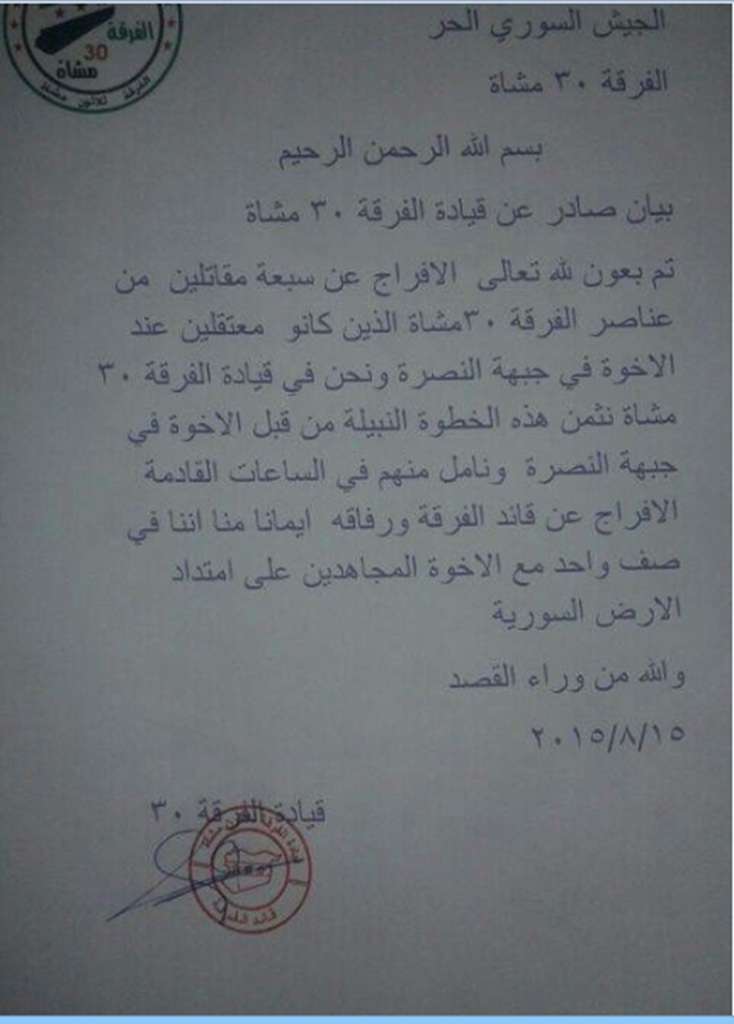 الفرقة
30
مشاة
الفرقة ثلاثون مشاة
الجيش السوري الحر
الفرقة ٣٠ مشاة
بسم الله الرحمن الرحيم
بيان صادر عن قيادة الفرقة ٣٠ مشاة
تم بعون لله تعالى الافراج عن سبعة مقاتلين من
عناصر الفرقة ٣٠مشاة الذين كانو معتقلين عند
الاخوة في جبهة النصرة ونحن في قيادة الفرقة ٣٠
مشاة نثمن هذه الخطوة النبيلة من قبل الاخوة في
جبهة النصرة ونامل منهم في الساعات القادمة
الافراج عن قائد الفرقة ورفاقه ايمانا منا اننا في
صف واحد مع الاخوة المجاهدين على امتداد
الارض السورية
والله من وراء القصد
٢٠١٥/٨/١٥
قيادة الفرقة ٣٠
قيادة الفرقة مشاة
قائد الفرقة